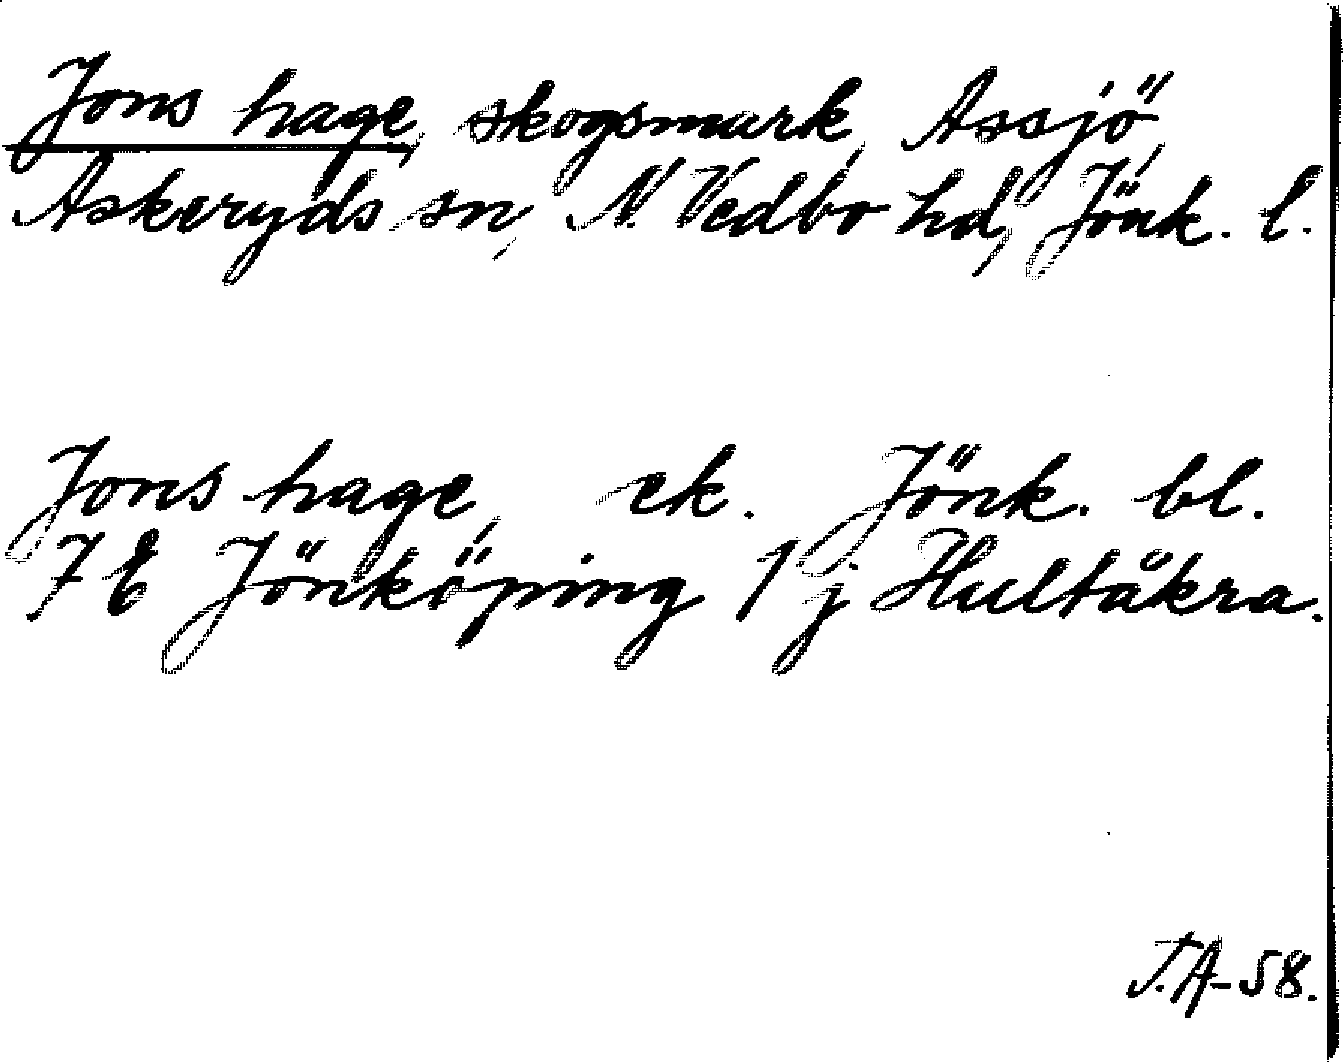 Jons hage, skogsmark, Assjö,
Askeryds sn, N. Vedbo hd, Jönk. l.
Jons hage, ek. Jönk. bl.
7 E Jönköping 1 j Hultåkra.
T.A-58.